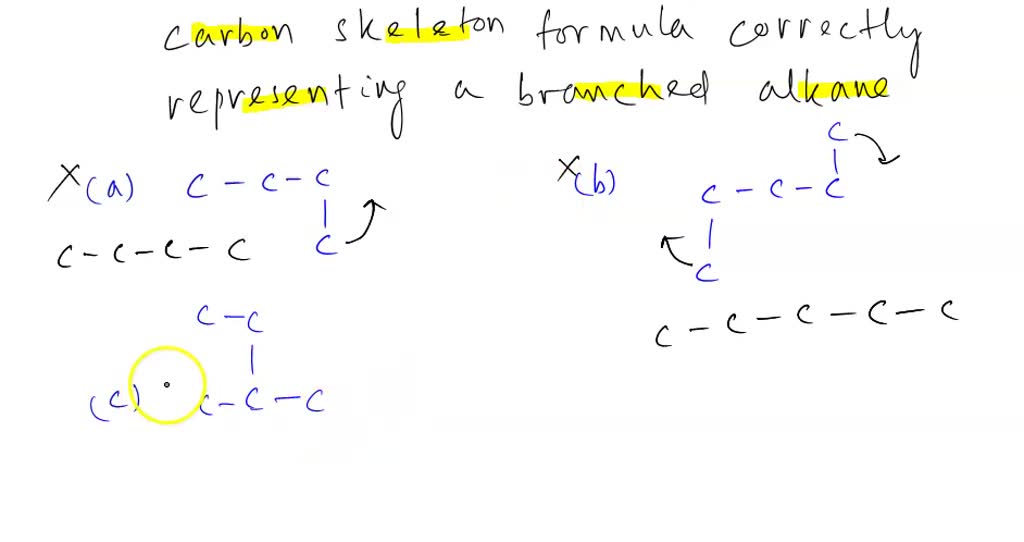 carbon skeleton formula correctly
representing a branched alkane
X (a) C - C - C
C
C - C - C - C
X (b) C
C - C - C
C
C - C - C - C - C
C - C
(c) C - C - C